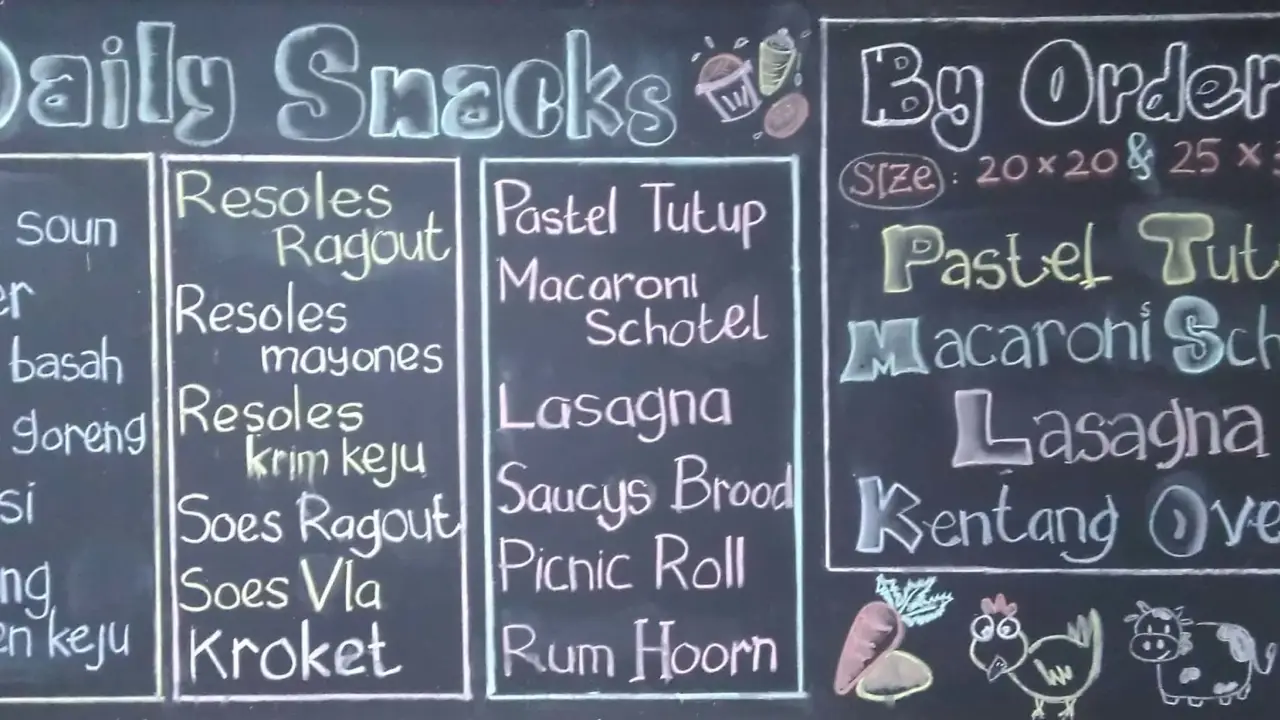 Daily Snacks
soun
basah
goreng
keju
Resoles
Ragout
Resoles
mayones
Resoles
krim keju
Soes Ragout
Soes Vla
Kroket
Pastel Tutup
Macaroni
Schotel
Lasagna
Saucys Brood
Picnic Roll
Rum Hoorn
By Order
SIZE : 20 x 20 & 25 x
Pastel Tut
Macaroni Sch
Lasagna
Kentang Ove